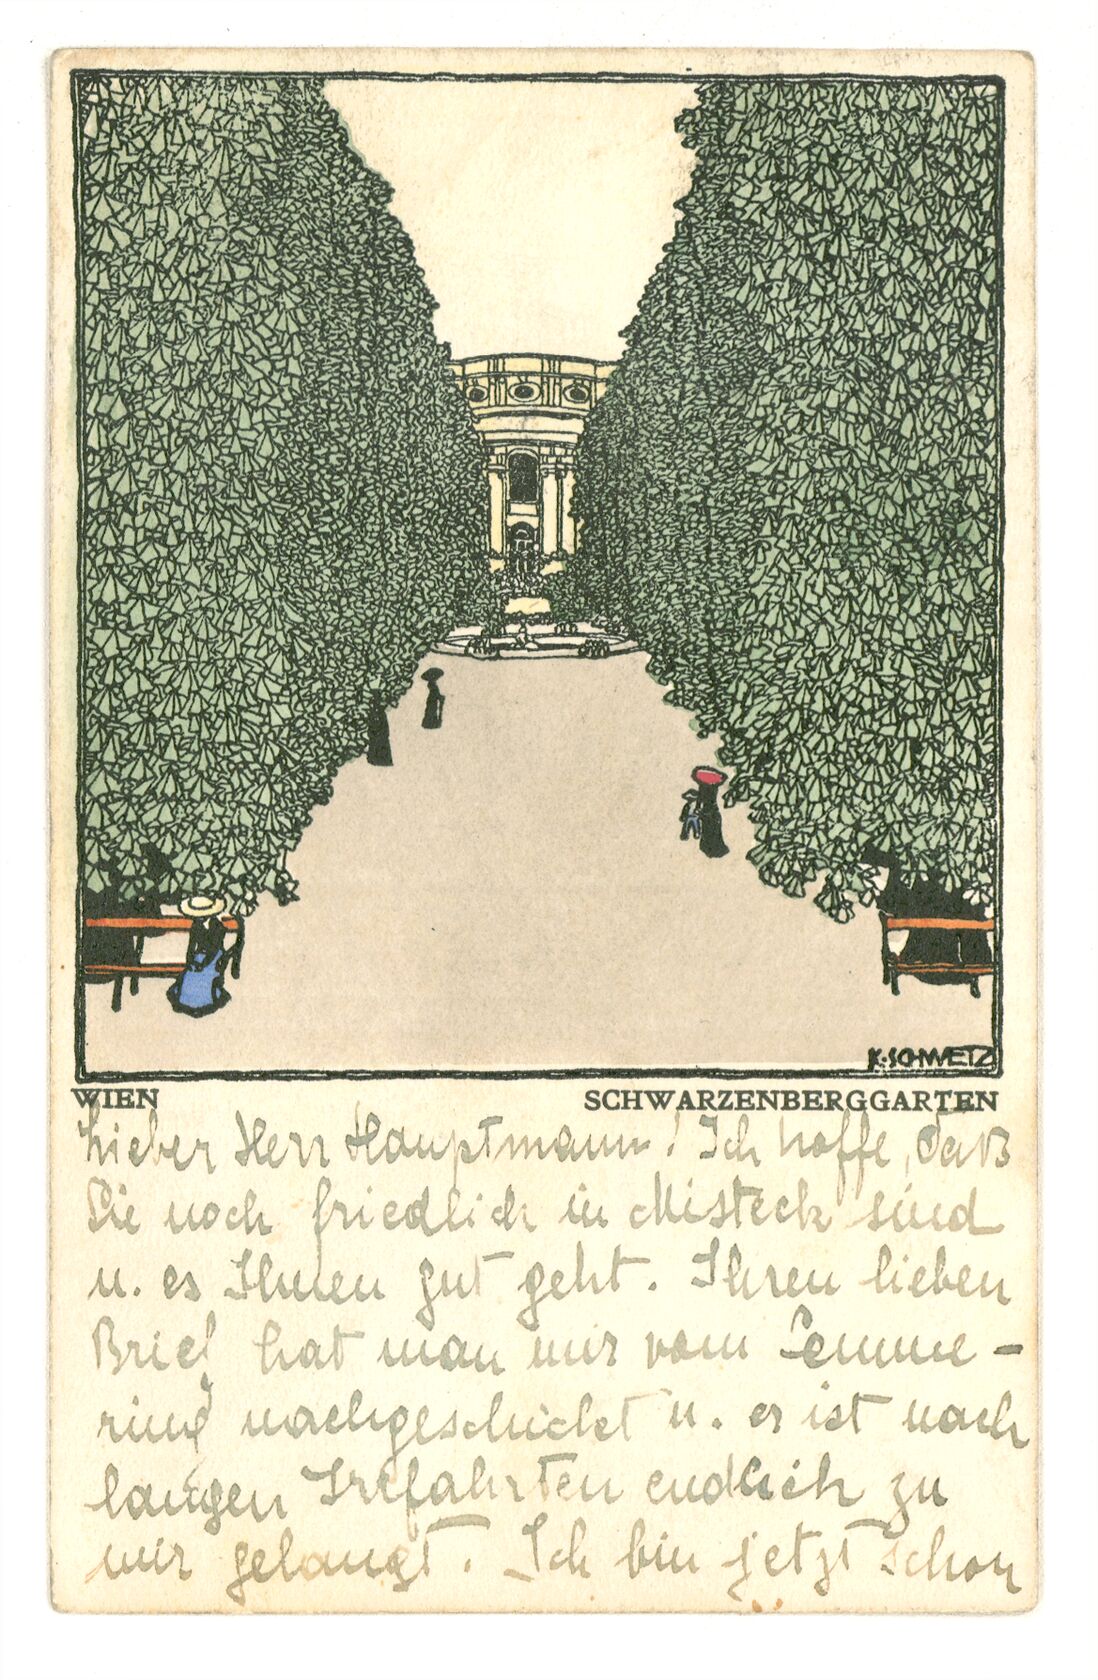 K. SCHWETZ
WIEN SCHWARZENBERGGARTEN
Lieber Herr Hauptmann! Ich hoffe, daß
Sie noch friedlich in Misteck sind
u. es Ihnen gut geht. Ihren lieben
Brief hat man mir vom Semme-
ring nachgeschickt u. er ist nach
langen Irrfahrten endlich zu
mir gelangt. Ich bin jetzt schon